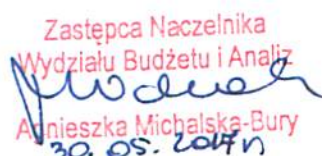 Zastępca Naczelnika
Wydziału Budżetu i Analiz
Agnieszka Michalska-Bury
30. 05. 2017 r.